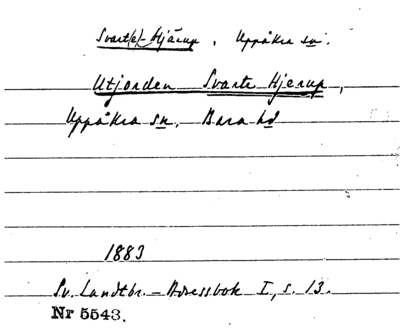 Svart(e)-Hjärup, Uppåkra sn.
Utjorden Svarte Hjerup,
Uppåkra sn, Bara hd
1883
Sv. Landtbr. - Adressbok I, s. 13.
Nr 5543.